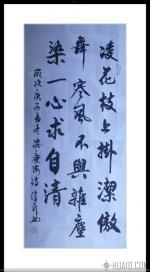 凌花枝上掛潔傲
舞寒風不與雜塵
染一心求自清
歲次庚子孟冬
HUAID.COM